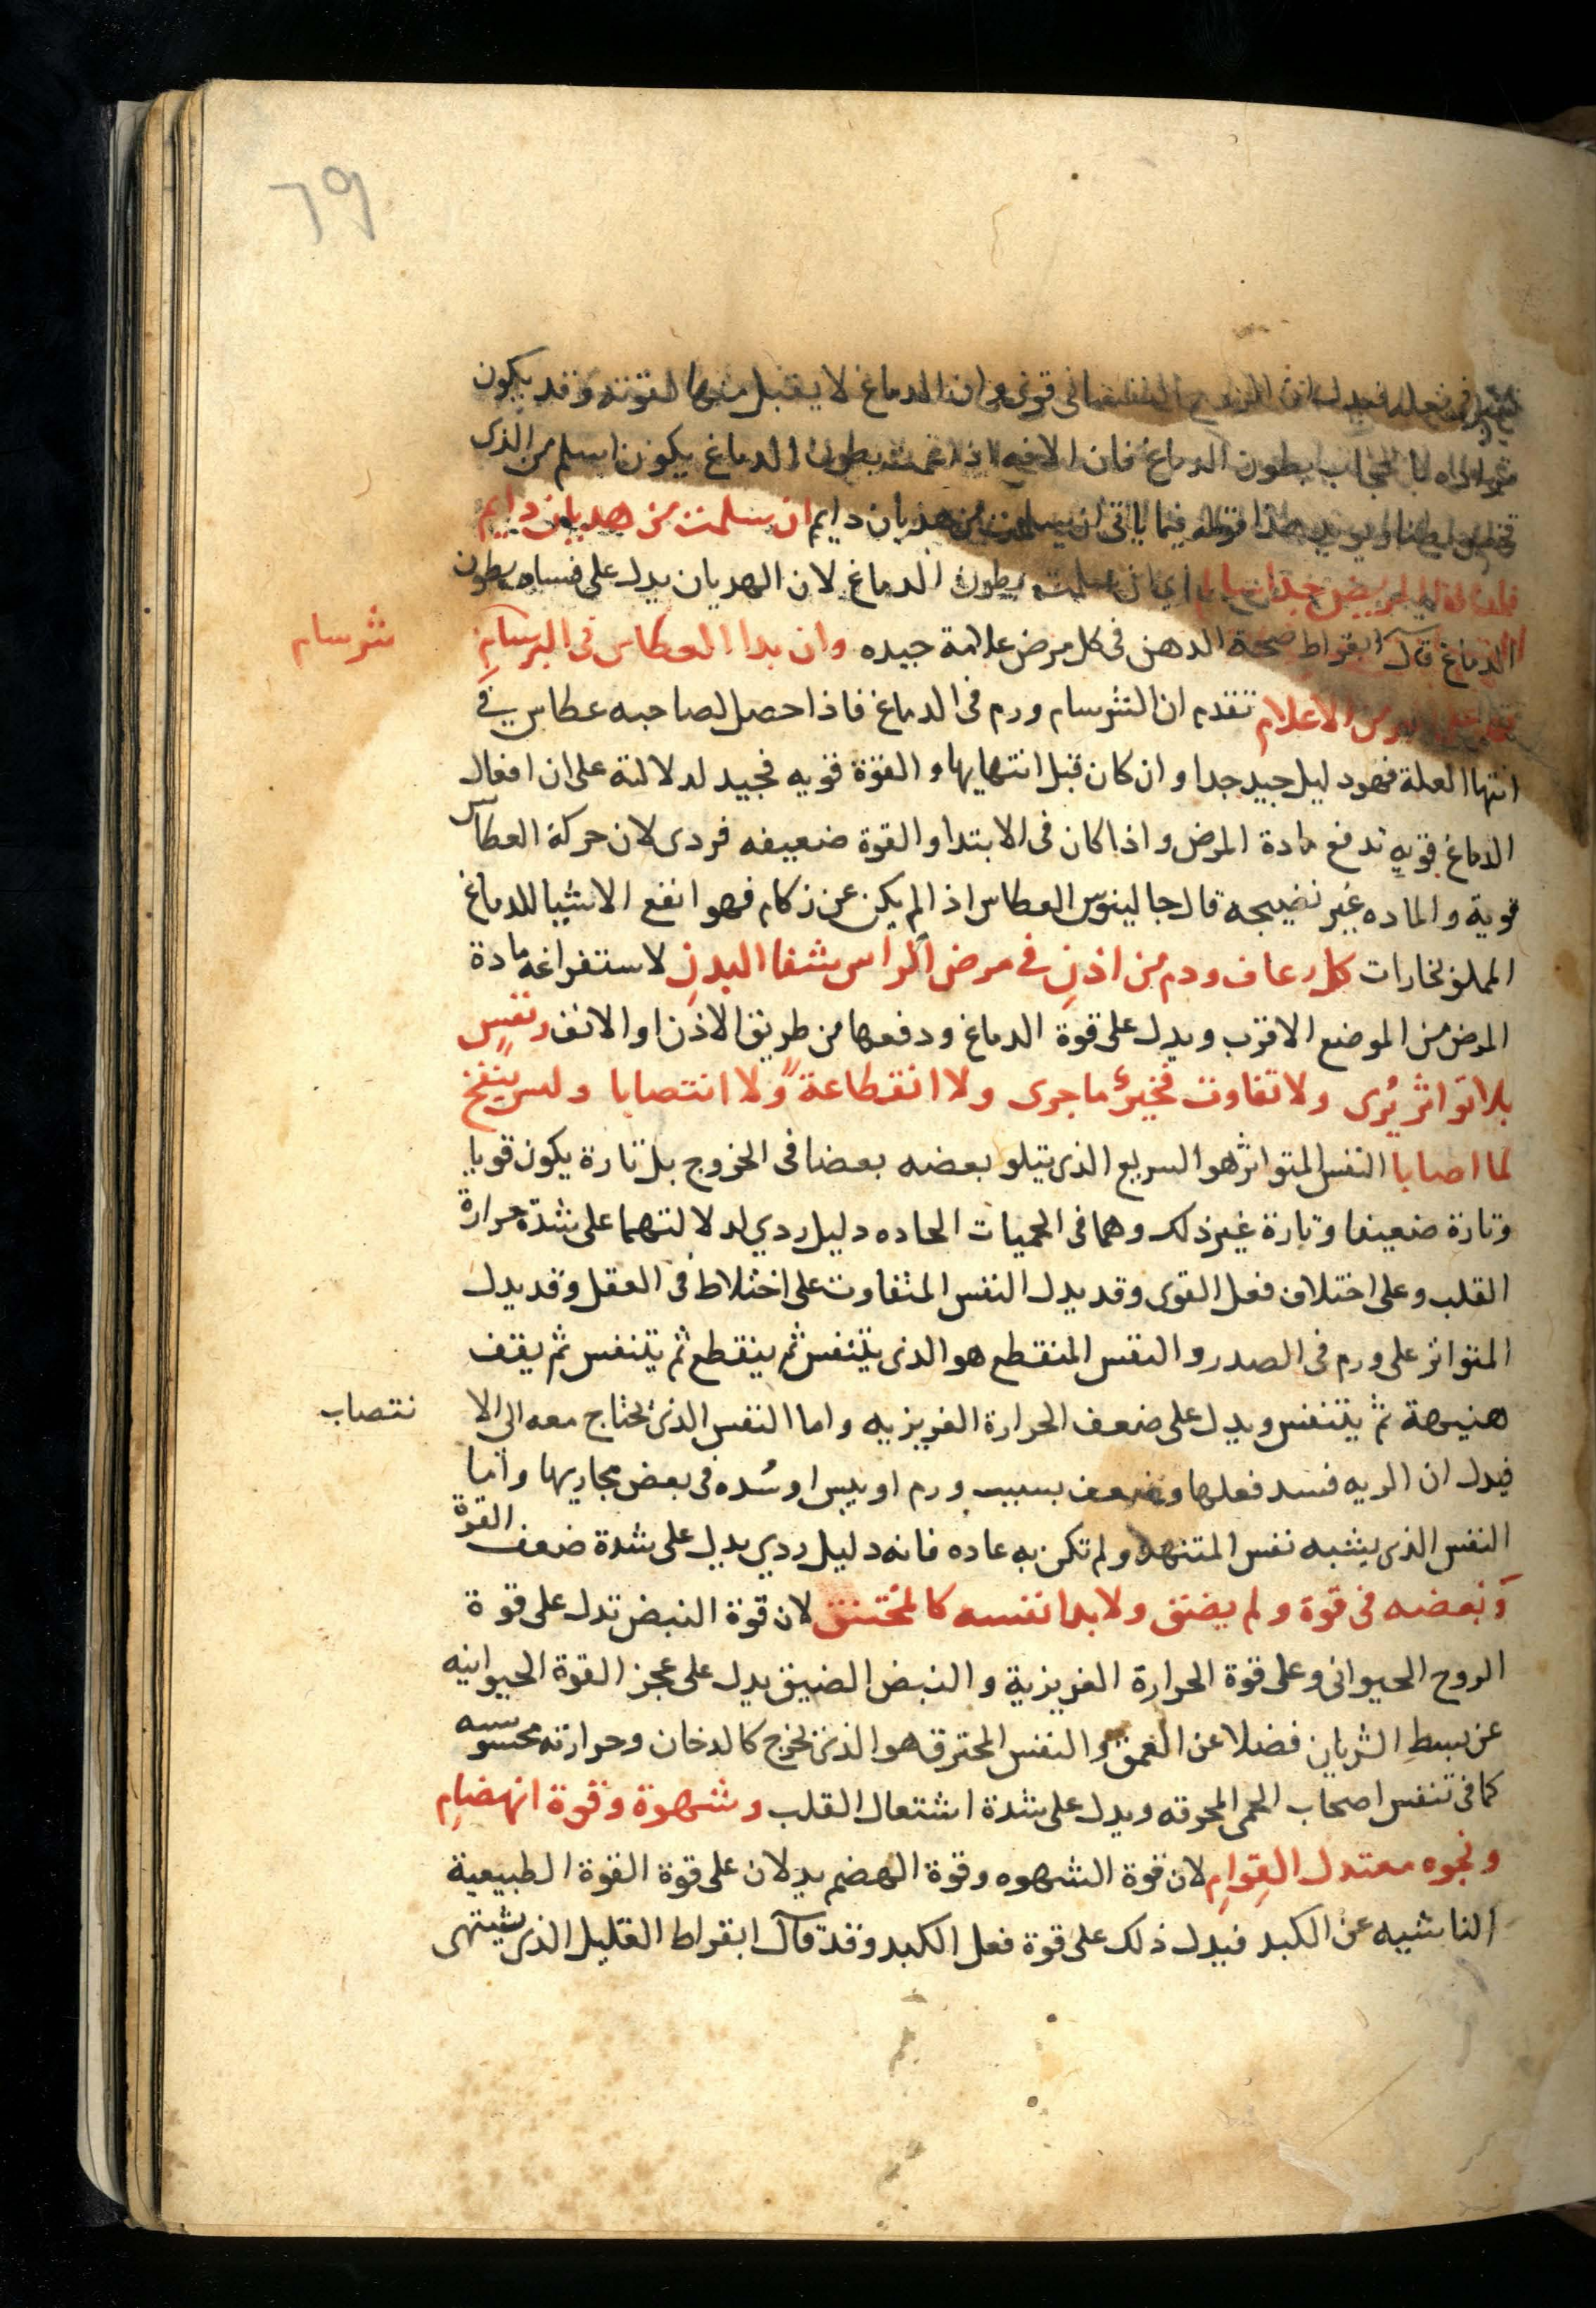 ٦٩
الدماغ لا يقبل منها لقوته وقد يكون
بطون الدماغ فان الافه اذا عمت بطون الدماغ يكون اسلم من الذى
فيما ياتى ان سلمت من هذيان دايم ان سلمت من هديان دايم
اى ان سلمت بطون الدماغ لان الهديان يدل على فساد بطون
الدماغ قال ابقراط صحة الدهن فى كل مرض علامة جيده وان بدا العطاس فى البرسامِ
شرسام
الاعلام تقدم ان الشرسام ورم فى الدماغ فاذا حصل لصاحبه عطاس فى
انتها العلة فهو دليل جيد جدا وان كان قبل انتهايها والقوة قويه فجيد لدلالته على ان افعال
الدماغ قويه تدفع مادة المرض واذا كان فى الابتدا والقوة ضعيفه فردى لان حركة العطاس
قوية والماده غير نضيجه قال جالينوس العطاس اذا لم يكن عن زكام فهو انفع الاشيا للدماغ
المملو بخارات كل رعاف ودم من اذنِ فى مرض الراس شفا البدنِ لاستفراغه مادة
المرض من الموضع الاقرب ويدل على قوة الدماغ ودفعها من طريق الاذن او الانف ونفسٍ
بلا تواثر يُرى ولا تفاوت فخيرٌ ما جرى ولا انقطاعةً ولا انتصابا وليس ينفخ
لما اصابا النفس المتواثر هو السريع الذى يتلو بعضه بعضا فى الخروج بل تارة يكون قويا
وتارة ضعيفا وتارة غير ذلك وهما فى الحميات الحاده دليل ردي لدلالتهما على شدة حرارة
القلب وعلى اختلاف فعل القوى وقد يدل النفس المتفاوت على اختلاط فى العقل وقد يدل
المتواثر على ورم فى الصدر والنفس المنقطع هو الذى يتنفس ثم ينقطع ثم يتنفس ثم يقف
هنيهة ثم يتنفس ويدل على ضعف الحرارة الغريزيه واما النفس الذى يحتاج معه الى الا
نتصاب
فيدل ان الريه فسد فعلها وضعف بسبب ورم او يبس او سُده فى بعض مجاريها واما
النفس الذى يشبه نفس المتنهد ولم تكن به عاده فانه دليل ردي يدل على شدة ضعف القوة
ونبضه فى قوة ولم يضق ولا بدا نفسه كالمختنق لان قوة النبض تدل على قوة
الروح الحيوانى وعلى قوة الحرارة الغريزية والنبض الضيق يدل على عجز القوة الحيوانيه
عن بسطِ الشريان فضلا عن العمق والنفس المحترق هو الذى يخرج كالدخان وحرارته محسوسه
كما فى تنفس اصحاب الحمى المحرقه ويدل على شدة اشتعال القلب وشهوة وقوة انهضامِ
ونجوه معتدل القِوامِ لان قوة الشهوه وقوة الهضم يدلان على قوة القوة الطبيعية
الناشيه عن الكبد فيدل ذلك على قوة فعل الكبد وقد قال ابقراط القليل الذى يشتهى